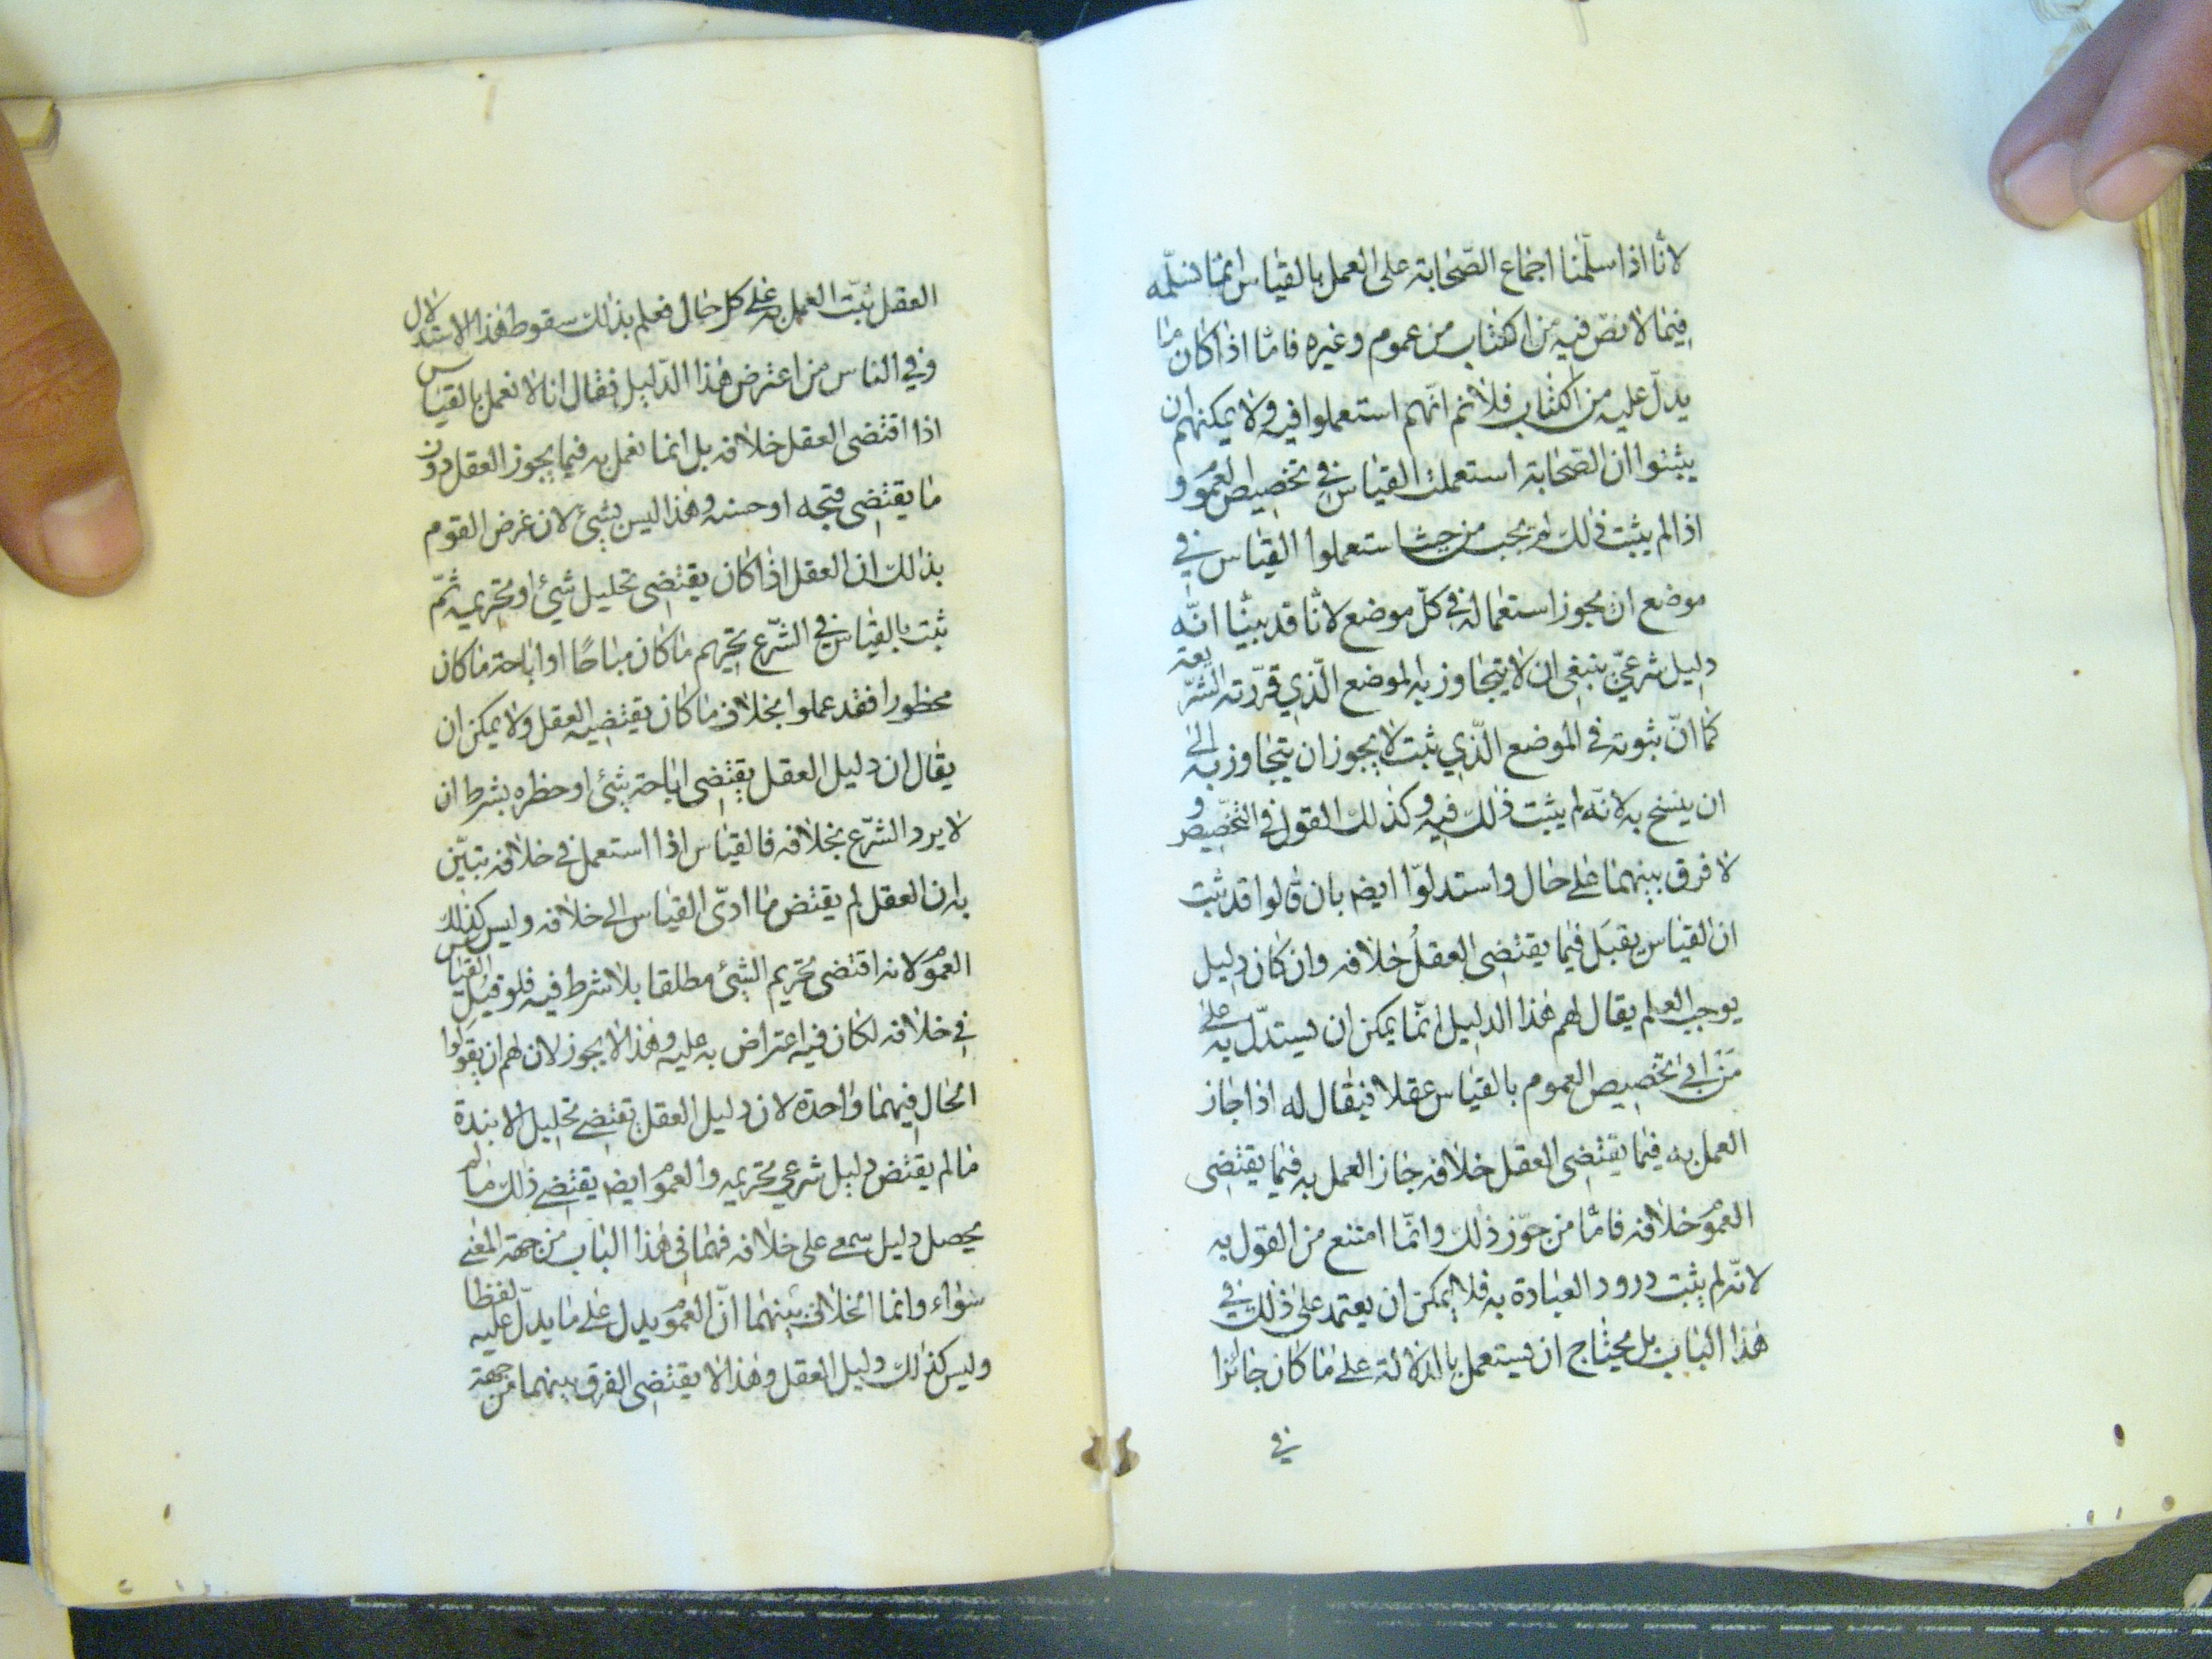 لانّا اذا سلّمنا اجماع الصّحابة على العمل بالقياس انّما نسلّمه
فيما لا نصّ فيه من الكتاب من عموم وغيره فامّا اذا كان ما
يدلّ عليه من الكتاب فلا نم انّهم استعملوا فيه ولا يمكنهم ان
يثبتوا ان الصّحابة استعملت القياس في تخصيص العمو و
اذا لم يثبت ذلك لم يجب من حيث استعملوا القياس في
موضع ان يجوز استعماله في كلّ موضع لانّا قد بينّا انّه
دليل شرعيّ ينبغي ان لا يتجاوز به الموضع الّذي قرّرته الشّريعة
كما انّ ثبوته في الموضع الّذي ثبت لا يجوز ان يتجاوز به الى
ان ينسخ به لانّه لم يثبت ذلك فيه وكذلك القول في التّخصيص و
لا فرق بينهما على حال واستدلّوا ايضم بان قالوا قد ثبت
ان القياس يقبَل فيما يقتضى العقلُ خلافه وان كان دليل
يوجب العلم يقال لهم هذا الدليل انّما يمكن ان يستدلّ به على
مَن ابى تخصيص العموم بالقياس عقلا فيقال له اذا جاز
العمل به فيما يقتضى العقل خلافه جاز العمل به فيما يقتضى
العموَ خلافه فامّا من جوّز ذلك وانّما امتنع من القول به
لانّه لم يثبت ورود العبادة به فلا يمكن ان يعتمد على ذلك في
هذا الباب بل يحتاج ان يستعمل بالدلالة على ما كان جائزا
في
العقل ثبّت العمل به على كل حال فعلم بذلك سقوط هذا الاستدلال
وفي الناس من اعترض هذا الدّليل فقال انا لا نعمل بالقياس
اذا اقتضى العقل خلافه بل انما نعمل به فيما يجوز العقل دون
ما يقتضى قبحه او حسنه وهذا ليس بشئ لان غرض القوم
بذلك ان العقل اذا كان يقتضى تحليل شئ او تحريمه ثمّ
ثبت بالقياس في الشّرع تحريم ما كان مباحًا او اباحة ما كان
محظورا فقد عملوا بخلاف ما كان يقتضيه العقل ولا يمكن ان
يقال ان دليل العقل يقتضى اباحة شئ او حظره بشرط ان
لا يرد الشّرع بخلافه فالقياس اذا استعمل في خلافه تبيّن
به ان العقل لم يقتض ما ادّى القياس الى خلافه وليس كذلك
العموَ لانه اقتضى تحريم الشئ مطلقا بلا شرط فيه فلو قبل القياس
في خلافه لكان فيه اعتراض به عليه وهذا لا يجوز لان لهم ان يقولوا
الحال فيهما واحدة لان دليل العقل تقتضى تحليل الانبذة
ما لم يقتض دليل شرعي تحريمه والعموَ ايضم يقتضى ذلك ما لم
يحصل دليل سمعى على خلافه فهما في هذا الباب من جهة المعنى
سواء وانما الخلاف بينهما انّ العموَ يدل على ما يدلّ عليه لفظا
وليس كذلك دليل العقل وهذا لا يقتضى الفرق بينهما من جهة